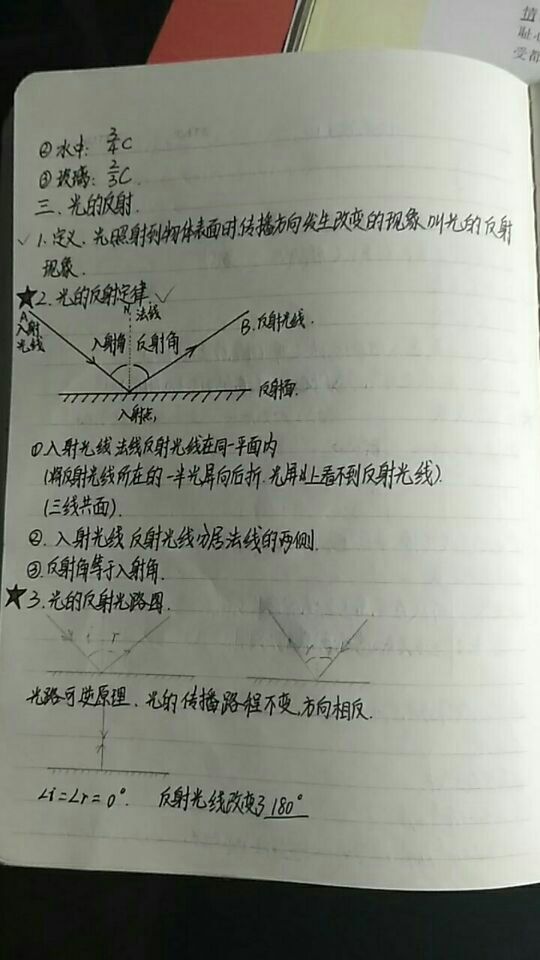 情
耻心
受都
② 水中: 3/4 C
③ 玻璃: 2/3 C.
三、光的反射.
✓ 1. 定义. 光照射到物体表面时传播方向发生改变的现象叫光的反射
现象.
★ 2. 光的反射定律. ✓
A N 法线
入射光线 入射角 反射角 B. 反射光线.
反射面.
入射点,
① 入射光线 法线反射光线在同一平面内
(将反射光线所在的一半光屏向后折. 光屏上看不到反射光线).
(三线共面).
②. 入射光线 反射光线分居法线的两侧.
③. 反射角等于入射角.
★ 3. 光的反射光路图.
i r r i
光路可逆原理. 光的传播路程不变, 方向相反.
∠i=∠r=0°. 反射光线改变了180°